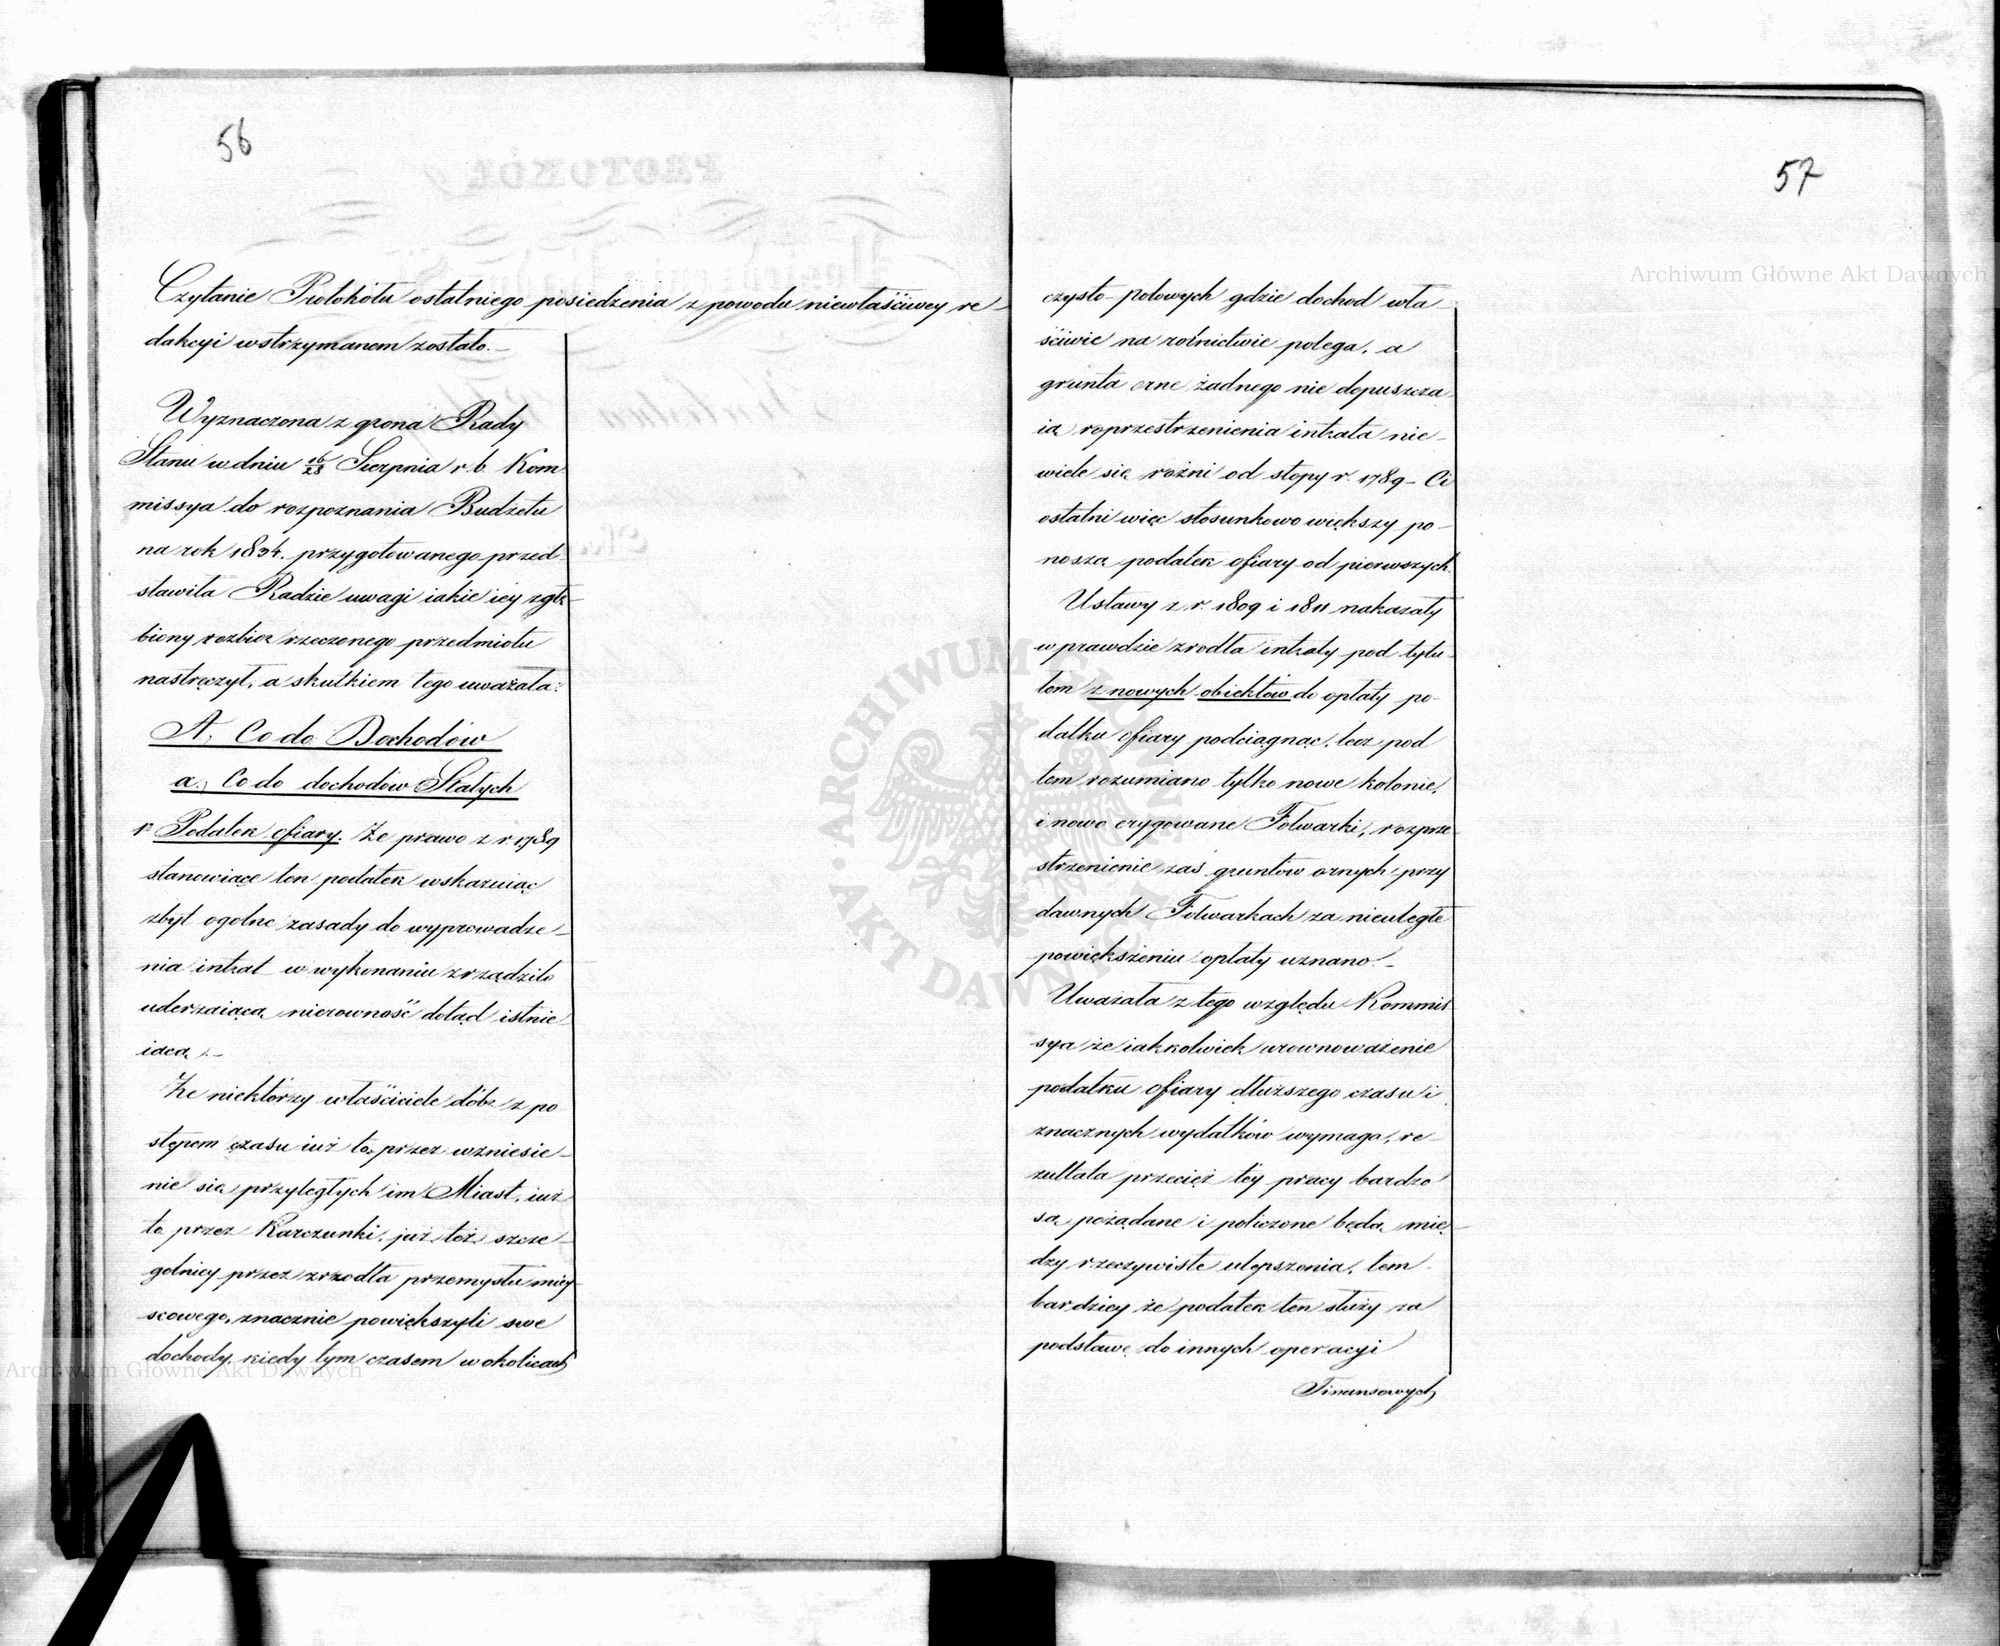 56
Czytanie Protokółu ostatniego posiedzenia z powodu niewłaściwey re-
dakcyi wstrzymanem zostało.-
Wyznaczona z grona Rady
Stanu w dniu 16/28 Sierpnia r.b. Kom
missya do rozpoznania Budżetu
na rok 1834. przygotowanego przed-
stawiła Radzie uwagi iakie iey zgłę-
biony rozbiór rzeczonego przedmiotu
nastręczył, a skutkiem tego uważała:
A, Co do Dochodów
a, Co do dochodów Stałych
1º Podatek ofiary. Że prawo z r. 1789
stanowiące ten podatek wskazuiąc
zbyt ogolne zasady do wyprowadze-
nia intrat w wykonaniu zrządziło
uderzaiącą nierowność dotąd istnie
iącą.-
Że niektórzy właściciele dóbr z po
stępem czasu iuż to przez wzniesie-
nie się przyległych im Miast, iuż
to przez Karczunki, już też szcze-
golniey przez zrzodła przemysłu miey-
scowego, znacznie powiększyli swe
dochody, kiedy tym czasem w okolicach
57
czysto-polowych gdzie dochod wła-
ściwie na rolnictwie polega, a
grunta orne żadnego nie dopuszcza-
ią rozprzestrzenienia intrata nie-
wiele się rożni od stopy r. 1789- Ci
ostatni więc stosunkowo większy po-
noszą podatek ofiary od pierwszych.
Ustawy z r. 1809 i 1811 nakazały
wprawdzie zrodła intraty pod tytu-
łem z nowych obiektów do opłaty po-
datku ofiary podciągnąć, lecz pod
tem rozumiano tylko nowe kolonie,
i nowo erygowane Folwarki, rozprze-
strzenienie zaś gruntów ornych przy
dawnych Folwarkach za nieuległe
powiększeniu opłaty uznano.-
Uważała z tego względu Kommis
sya że iakkolwiek zrownoważenie
podatku ofiary dłuższego czasu i
znacznych wydatków wymaga, re-
zultata przecież tey pracy bardzo
są pożądane i policzone będą mię-
dzy rzeczywiste ulepszenia, tem-
bardziey że podatek ten służy za
podstawę do innych operacyi
Finansowych